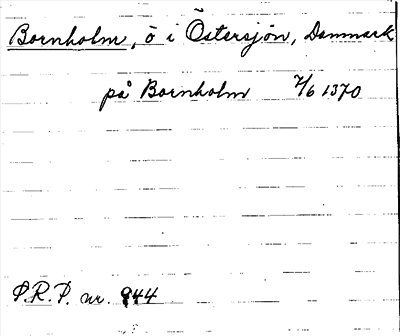 Bornholm, ö i Östersjön, Danmark
på Bornholm 7/6 1370
P.R.P. nr. 944